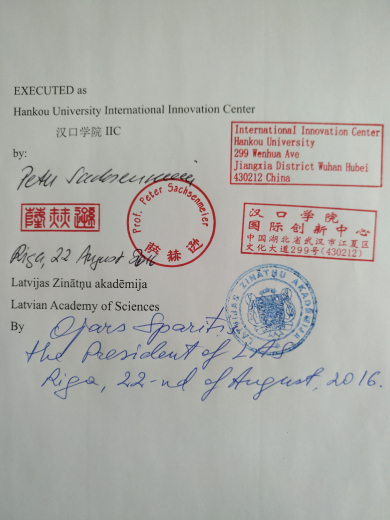 EXECUTED as
Hankou University International Innovation Center
汉口学院 IIC
by:
International Innovation Center
Hankou University
299 Wenhua Ave
Jiangxia District Wuhan Hubei
430212 China
Peter Sachsenmeier
Prof. Peter Sachsenmeier
萨赫逊
汉口学院
国际创新中心
中国湖北省武汉市江夏区
文化大道299号(430212)
Riga, 22 August 2016
Latvijas Zinātņu akadēmija
Latvian Academy of Sciences
LATVIJAS ZINĀTŅU AKADĒMIJA
By Ojars Spariti
the President of LAS
Riga, 22-nd of August, 2016.